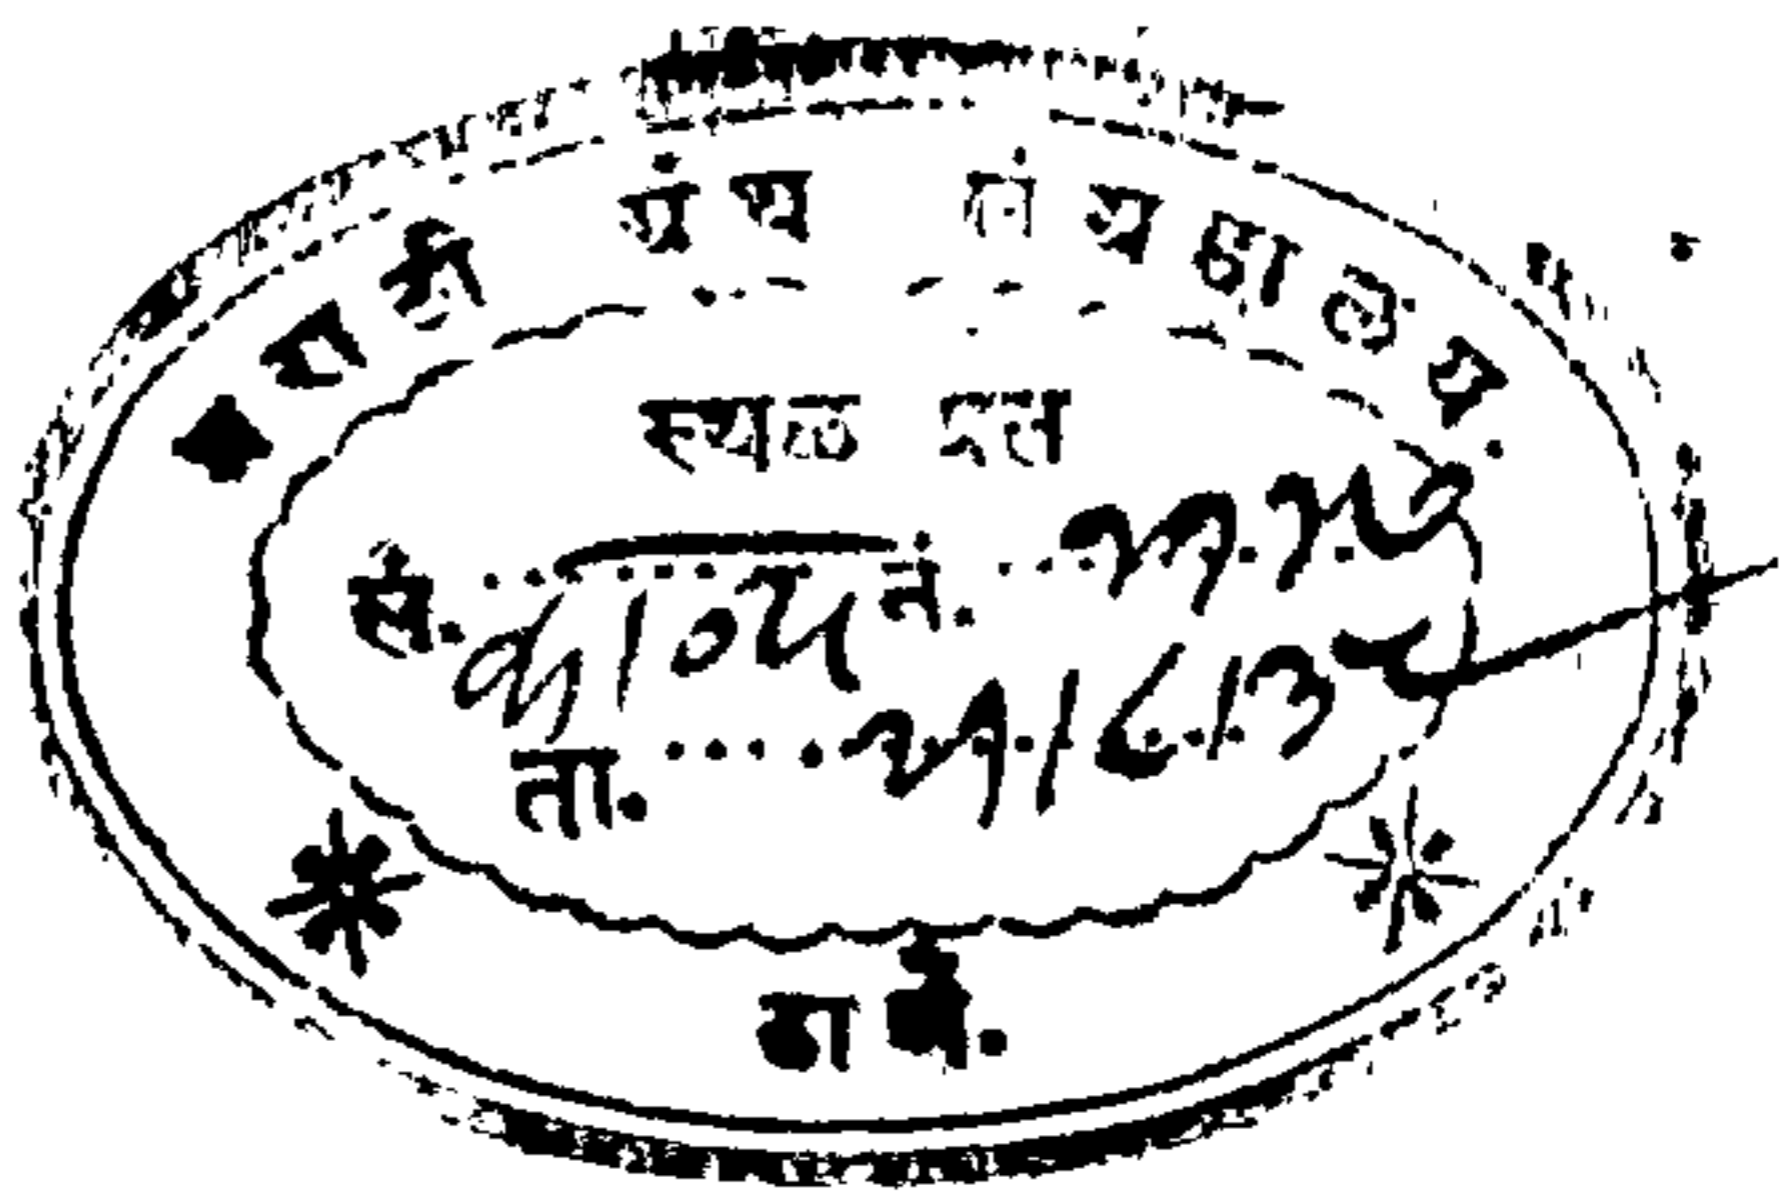 मराठी ग्रंथ संग्रहालय.
स्थळ प्रत
सं. काव्य नं.
ता. २१/८/३५
ठाणें.